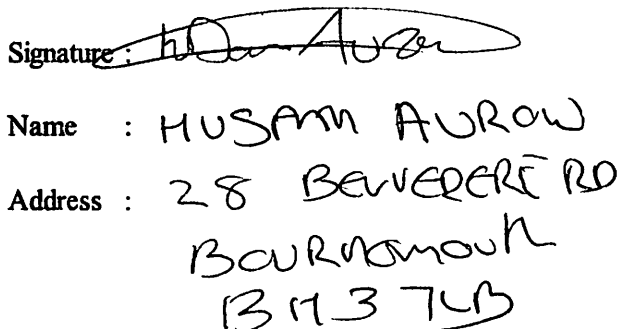 Signature :
Name : HUSAM AUROW
Address : 28 BELVEDERE RD
BOURNEMOUTH
BH3 7LB